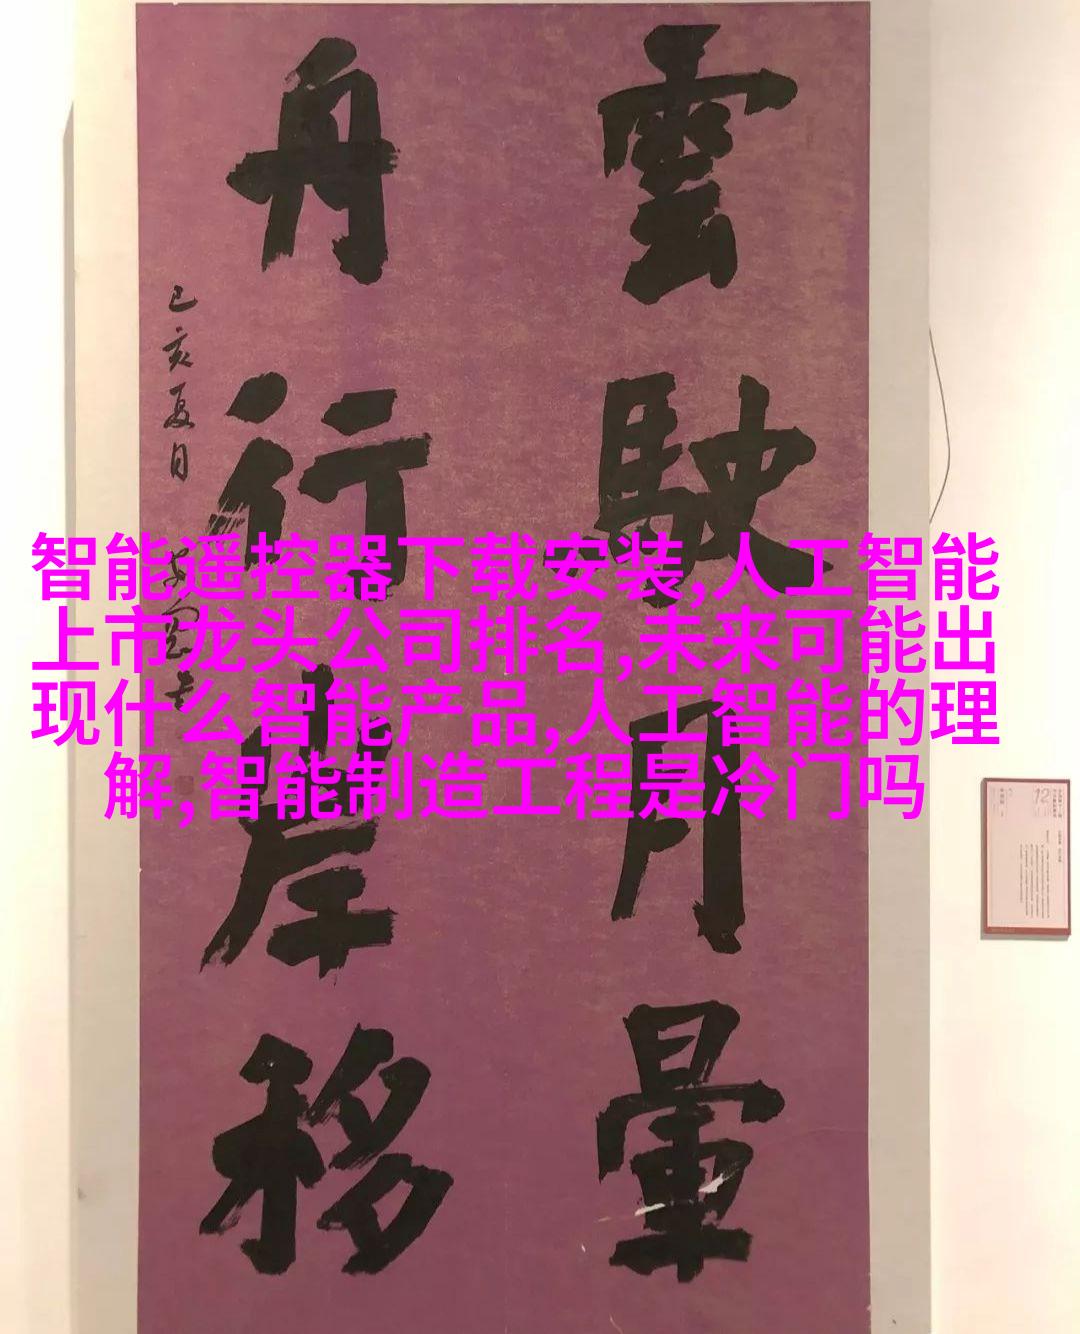 雲駛月暈
舟行岸移
己亥夏日
智能遥控器下载安装,人工智能
上市龙头公司排名,未来可能出
现什么智能产品,人工智能的理
解,智能制造工程是冷门吗
12